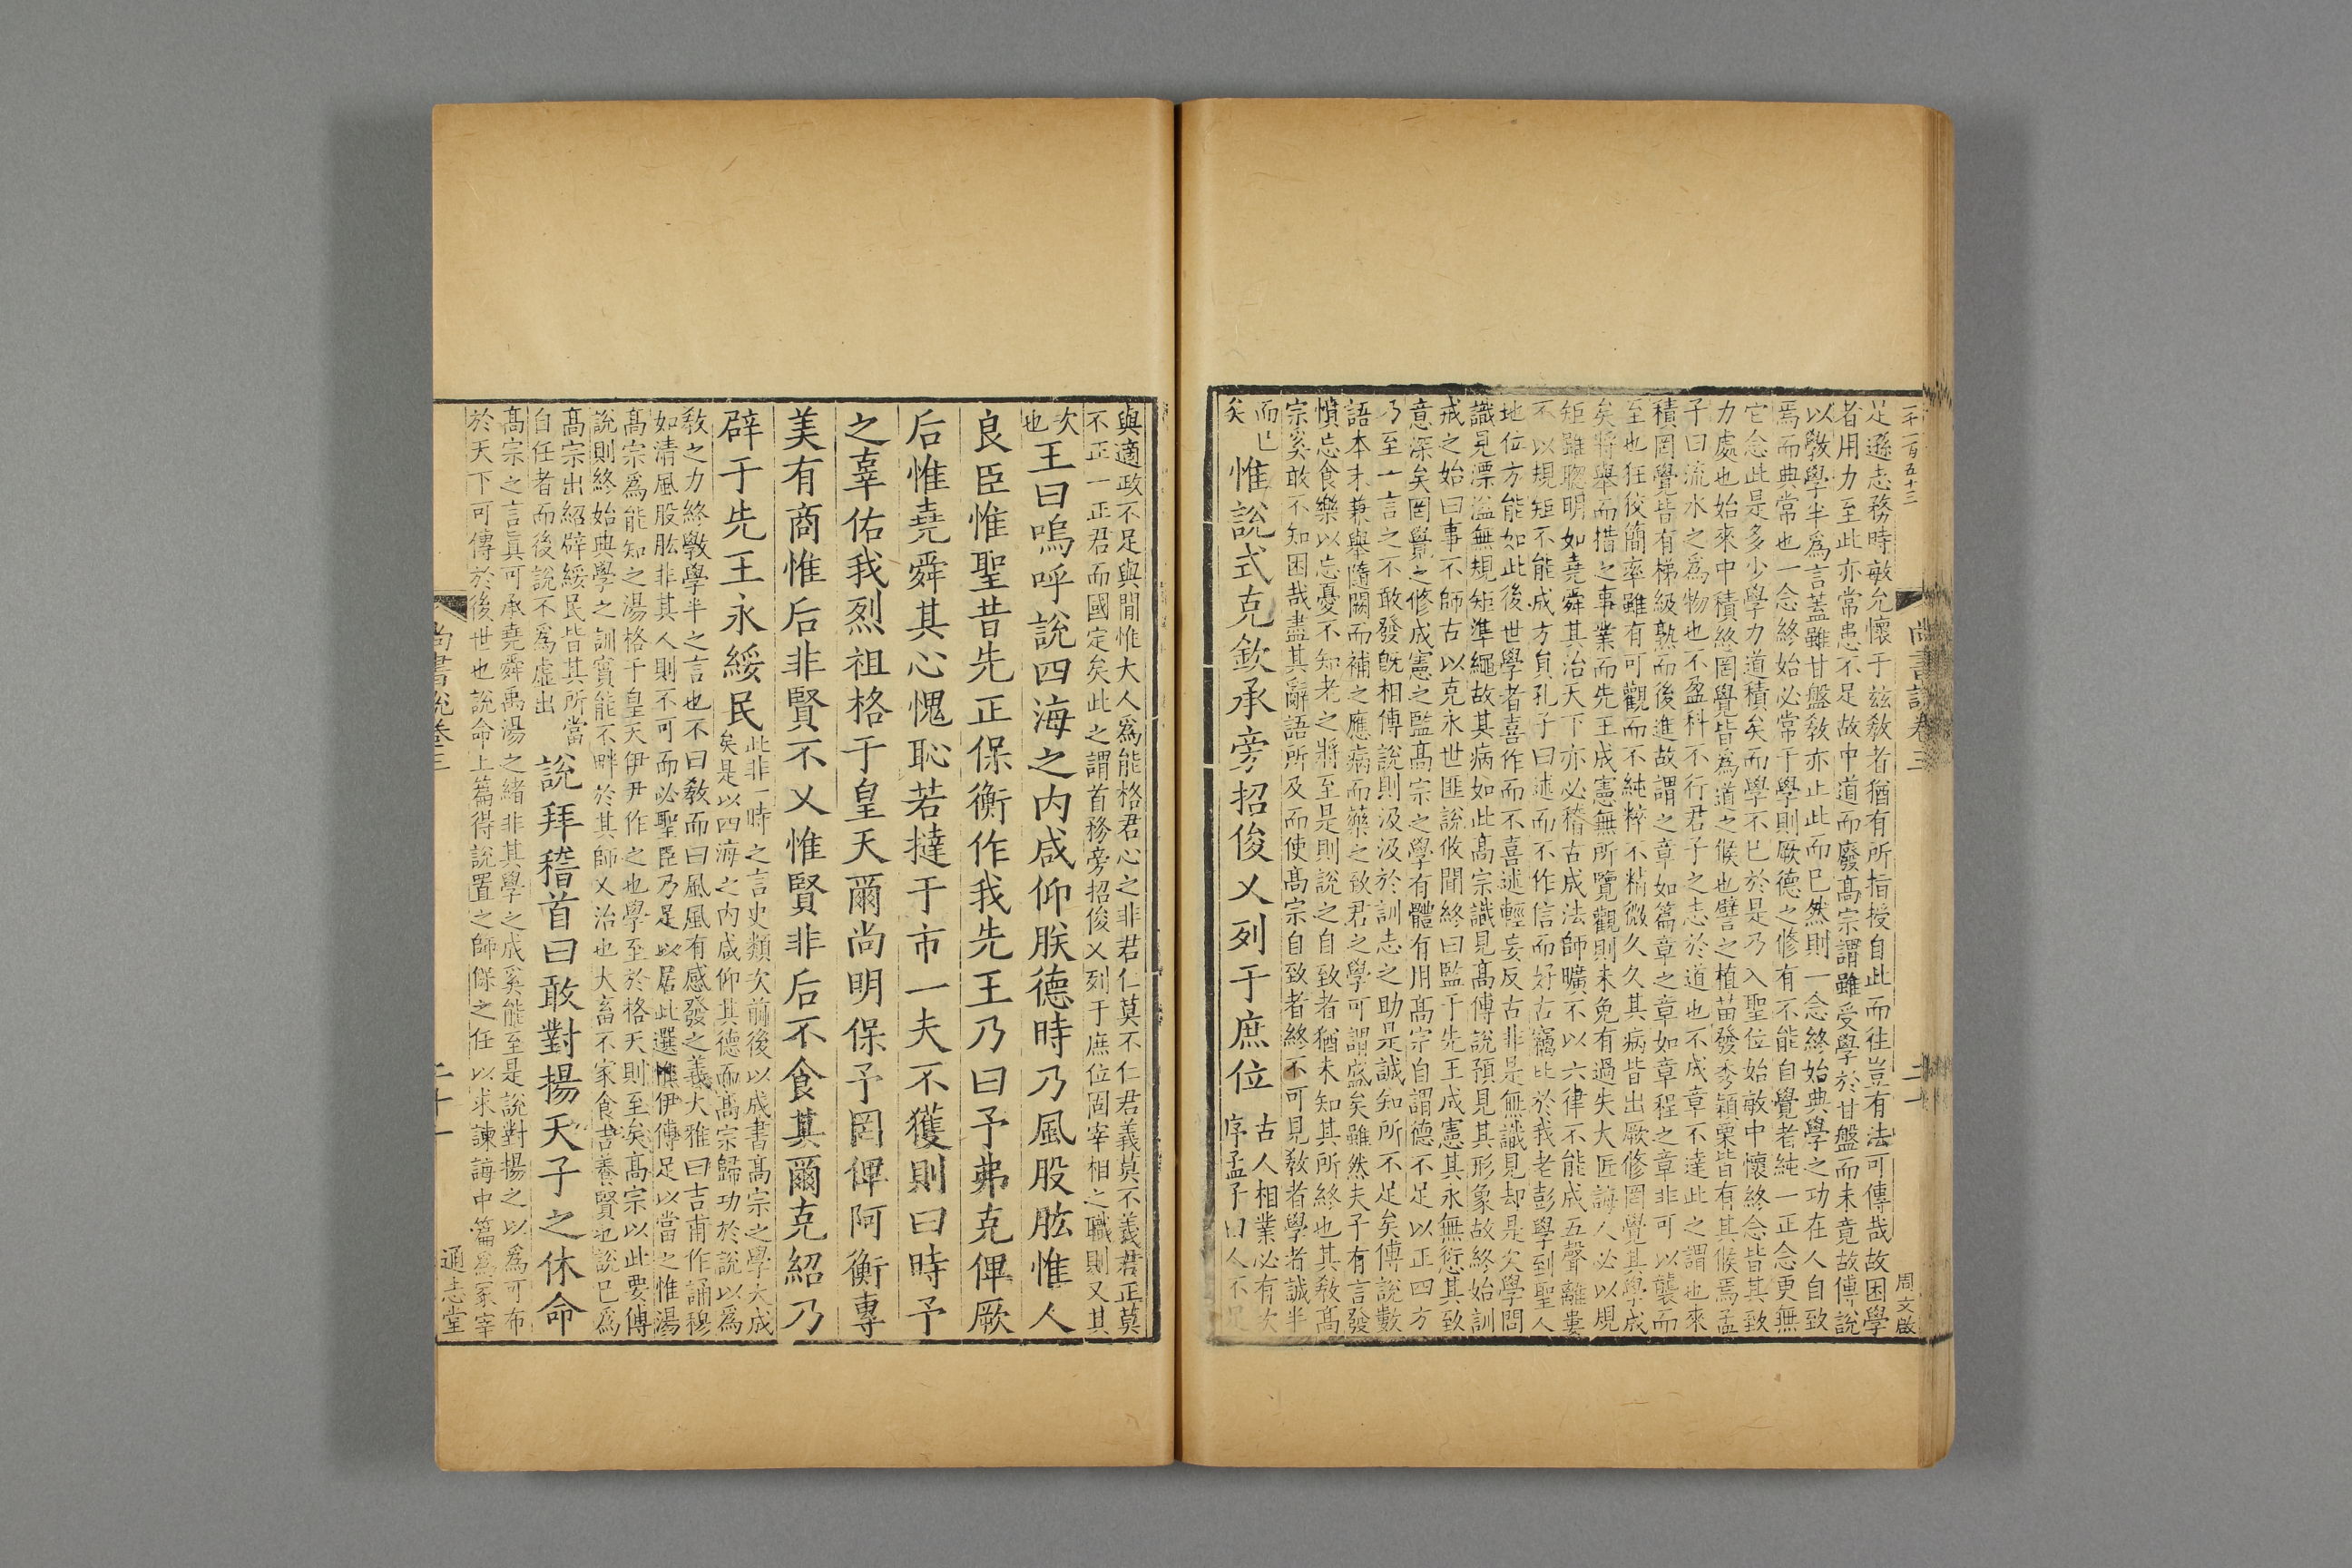 不一百五十三
尚書說卷三
周文啟
足遜志務時敏允懷于兹敎者猶有所指授自此而往豈有法可傳哉故困學
者用力至此亦常患不足故中道而廢髙宗謂雖受學於甘盤而未竟故傳說
以斆學半爲言葢雖甘盤敎亦止此而已然則一念終始典學之功在人自致
焉而典常也一念終始必常于學則厥德之修有不能自覺者純一正念更無
它念此是多少學力道積矣而學不已於是乃入聖位始敏中懷終念皆其致
力處也始來中積終罔覺皆爲道之候也譬之植苗發秀穎栗皆有其候焉孟
子曰流水之爲物也不盈科不行君子之志於道也不成章不達此之謂也來
積罔覺皆有梯級熟而後進故謂之章如篇章之章如章程之章非可以襲而
至也狂狡簡率雖有可觀而不純粹不精微久久其病皆出厥修罔覺其學成
矣將舉而措之事業而先王成憲無所覽觀則未免有過失大匠誨人必以規
矩雖聦明如堯舜其治天下亦必稽古成法師曠不以六律不能成五聲離婁
不以規矩不能成方貟孔子曰述而不作信而好古竊比於我老彭學到聖人
地位方能如此後世學者喜作而不喜述輕妄反古非是無識見却是欠學問
識見漂溢無規矩準繩故其病如此髙宗識見髙傅說預見其形象故終始訓
戒之始曰事不師古以克永世匪說攸聞終曰監于先王成憲其永無愆其致
意深矣罔覺之修成憲之監髙宗之學有體有用髙宗自謂德不足以正四方
乃至一言之不敢發旣相傅說則汲汲於訓志之助是誠知所不足矣傅說數
語本末兼舉隨闕而補之應病而藥之致君之學可謂盛矣雖然夫子有言發
憤忘食樂以忘憂不知老之將至是則說之自致者猶未知其所終也其敎髙
宗奚敢不知困哉盡其辭語所及而使髙宗自致者終不可見敎者學者誠半
而已
矣
惟說式克欽承旁招俊乂列于庶位
古人相業必有次
序孟子曰人不足
與適政不足與閒惟大人爲能格君心之非君仁莫不仁君義莫不義君正莫
不正一正君而國定矣此之謂首務旁招俊乂列于庶位固宰相之職則又其
次
也
王曰嗚呼說四海之内咸仰朕德時乃風股肱惟人
良臣惟聖昔先正保衡作我先王乃曰予弗克俾厥
后惟堯舜其心愧恥若撻于市一夫不獲則曰時予
之辜佑我烈祖格于皇天爾尚明保予罔俾阿衡專
美有商惟后非賢不乂惟賢非后不食其爾克紹乃
辟于先王永綏民
此非一時之言史類次前後以成書髙宗之學大成
矣是以四海之内咸仰其德而髙宗歸功於說以爲
敎之力終斆學半之言也不曰敎而曰風風有感發之義大雅曰吉甫作誦穆
如清風股肱非其人則不可而必聖臣乃足以居此選惟伊傅足以當之惟湯
髙宗爲能知之湯格于皇天伊尹作之也學至於格天則至矣髙宗以此要傅
說則終始典學之訓實能不畔於其師乂治也大畜不家食吉養賢也說已爲
髙宗出紹辟綏民皆其所當
自任者而後說不爲虛出
說拜稽首曰敢對揚天子之休命
髙宗之言眞可承堯舜禹湯之緒非其學之成奚能至是說對揚之以爲可布
於天下可傳於後世也說命上篇得說置之師保之任以求諫誨中篇爲冢宰
尚書說卷三
二十一
通志堂